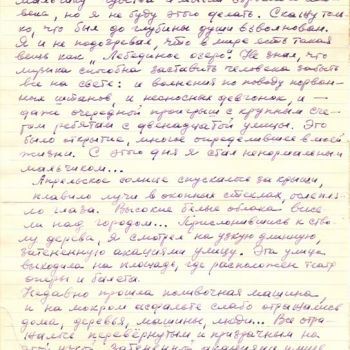 века, но я не буду этого делать. Скажу толь-
ко, что был до глубины души взволнован.
Я и не подозревал, что в мире есть такая
вещь как „Лебединое озеро". Не знал, что
музыка способна заставить человека забыть
все на свете: и волнения по поводу порван-
ных штанов, и несносная девчонка, и
даже очередной проигрыш с крупным сче-
том ребятам с двенадцатой улицы. Это
было открытие, многое определившее в моей
жизни. С этого дня я стал ненормальным
мальчиком...
Апрельское солнце спускалось за крыши,
плавило лучи в оконных стеклах, ослепля-
ло глаза. Высокие белые облака висе-
ли над городом... Прислонившись к ство-
лу дерева, я смотрел на узкую длинную,
затененную акациями улицу. Эта улица
выходила на площадь, где расположен театр
оперы и балета.
Недавно прошла поливочная машина,
и на мокром асфальте слабо отражались
дома, деревья, машины, люди... Все отра-
жалось перевёрнутым и призрачным на